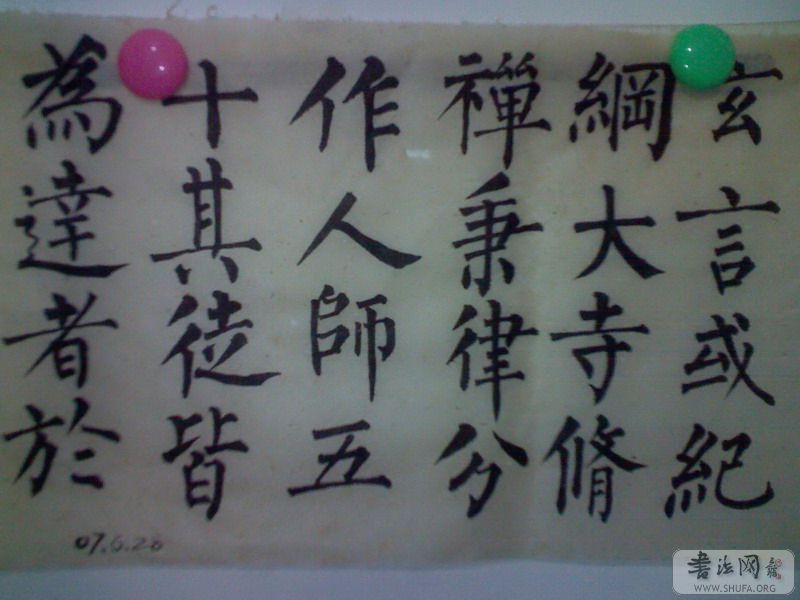 玄言或紀
綱大寺脩
禪秉律分
作人師五
十其徒皆
為達者於
07.6.28
书法网
WWW.SHUFA.ORG